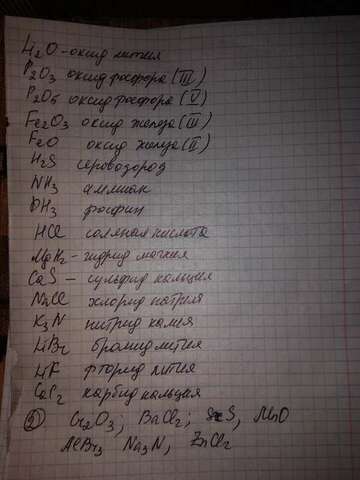 Li2O - оксид лития
P2O3 оксид фосфора (III)
P2O5 оксид фосфора (V)
Fe2O3 оксид железа (III)
FeO оксид железа (II)
H2S сероводород
NH3 аммиак
PH3 фосфин
HCl соляная кислота
MgH2 - гидрид магния
CaS - сульфид кальция
NaCl хлорид натрия
K3N нитрид калия
LiBr бромид лития
LiF фторид лития
CaC2 карбид кальция
② Cr2O3; BaCl2; S, MnO
AlBr3 Na3N, ZnCl2